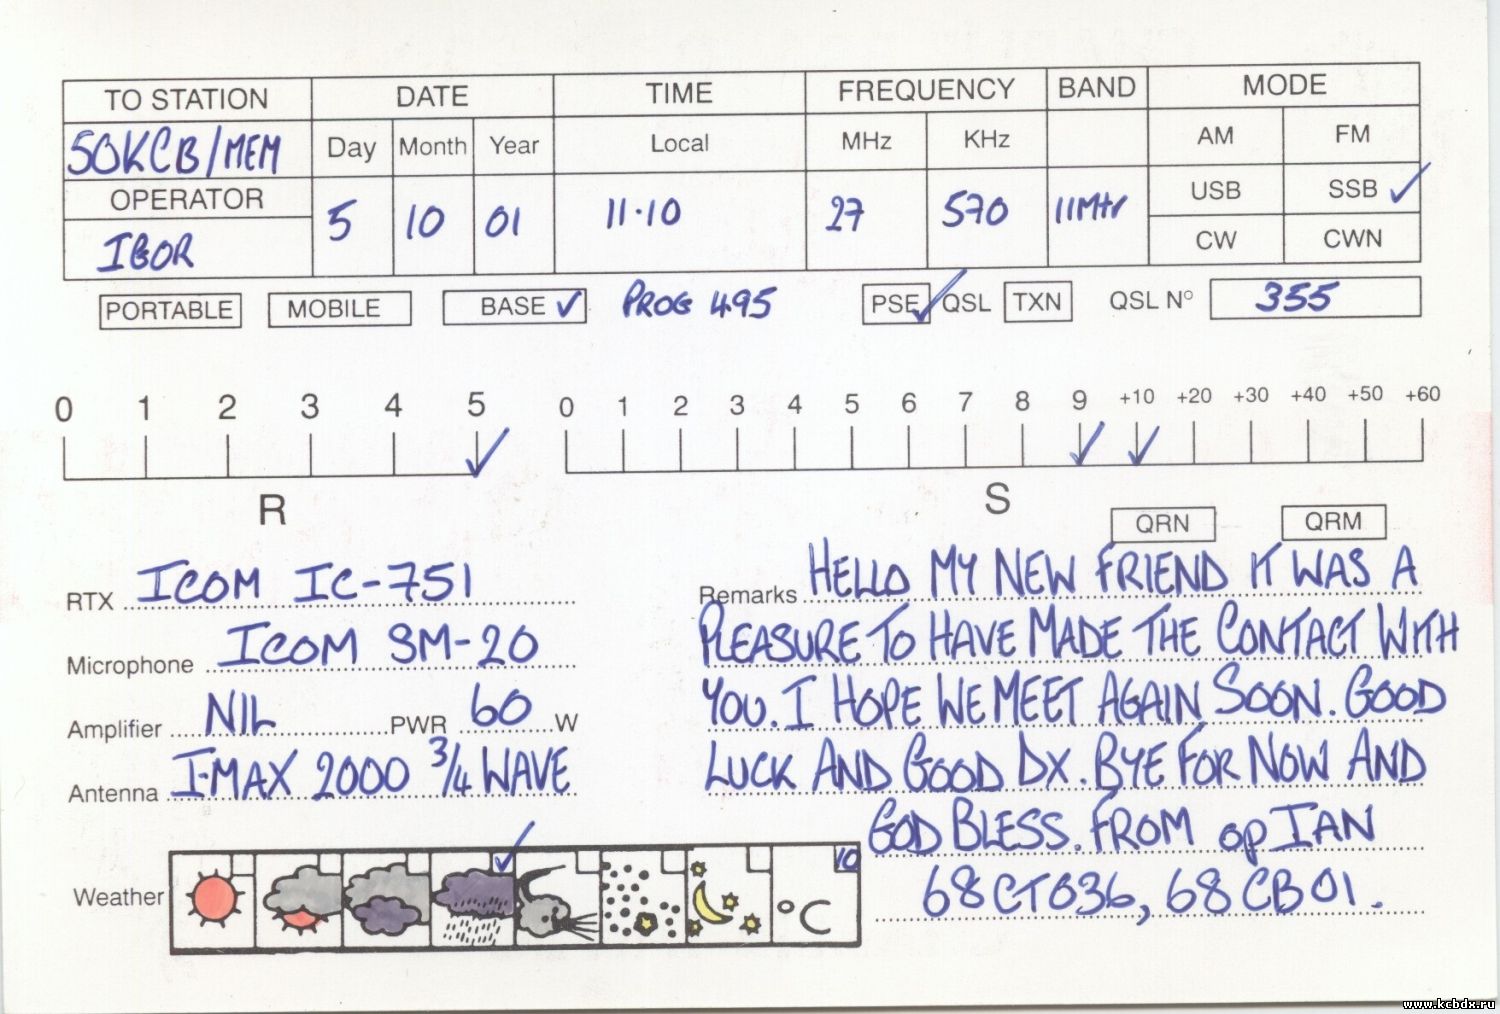 TO STATION DATE TIME FREQUENCY BAND MODE
50KCB/MEM Day Month Year Local MHz KHz AM FM
OPERATOR USB SSB
IGOR 5 10 01 11.10 27 570 11Mtr CW CWN
PORTABLE MOBILE BASE PROG 495 PSE QSL TXN QSL Nº 355
0 1 2 3 4 5 0 1 2 3 4 5 6 7 8 9 +10 +20 +30 +40 +50 +60
R S
QRN QRM
RTX ICOM IC-751
Microphone ICOM SM-20
Amplifier NIL PWR 60 W
Antenna I-MAX 2000 3/4 WAVE
Remarks HELLO MY NEW FRIEND IT WAS A
PLEASURE TO HAVE MADE THE CONTACT WITH
YOU. I HOPE WE MEET AGAIN SOON. GOOD
LUCK AND GOOD DX. BYE FOR NOW AND
GOD BLESS. FROM op IAN
68CT036, 68CB01.
Weather 10 °C
www.kcbdx.ru